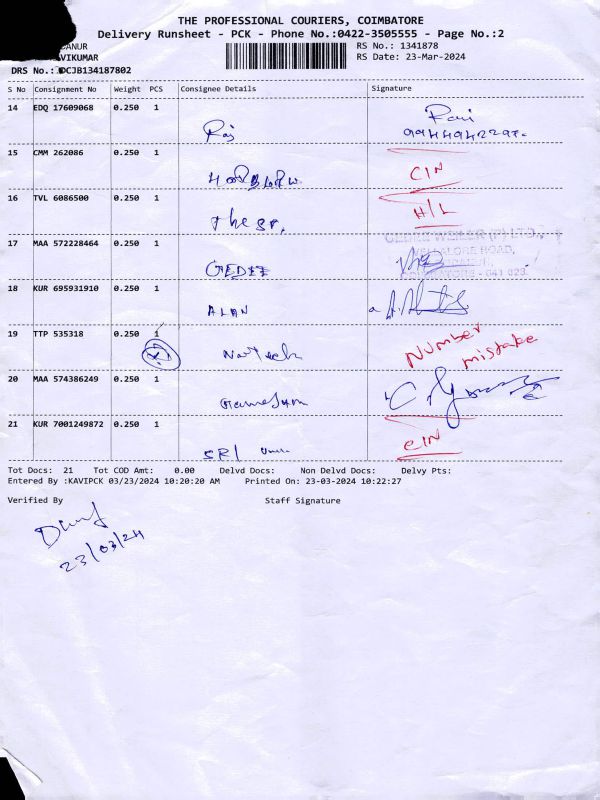 THE PROFESSIONAL COURIERS, COIMBATORE
Delivery Runsheet - PCK - Phone No.:0422-3505555 - Page No.:2
DANUR RS No.: 1341878
VIKUMAR RS Date: 23-Mar-2024
DRS No.: DCJB134187802
S No Consignment No Weight PCS Consignee Details Signature
14 EDQ 17609068 0.250 1 Raj Ravi
15 CMM 262086 0.250 1 CIN
16 TVL 6086500 0.250 1 H/L
17 MAA 572228464 0.250 1 GEDEE
18 KUR 695931910 0.250 1 ALAN
19 TTP 535318 0.250 1 Number mistake
20 MAA 574386249 0.250 1
21 KUR 7001249872 0.250 1 SRI CIN
Tot Docs: 21 Tot COD Amt: 0.00 Delvd Docs: Non Delvd Docs: Delvy Pts:
Entered By :KAVIPCK 03/23/2024 10:20:20 AM Printed On: 23-03-2024 10:22:27
Verified By Staff Signature
23/03/24